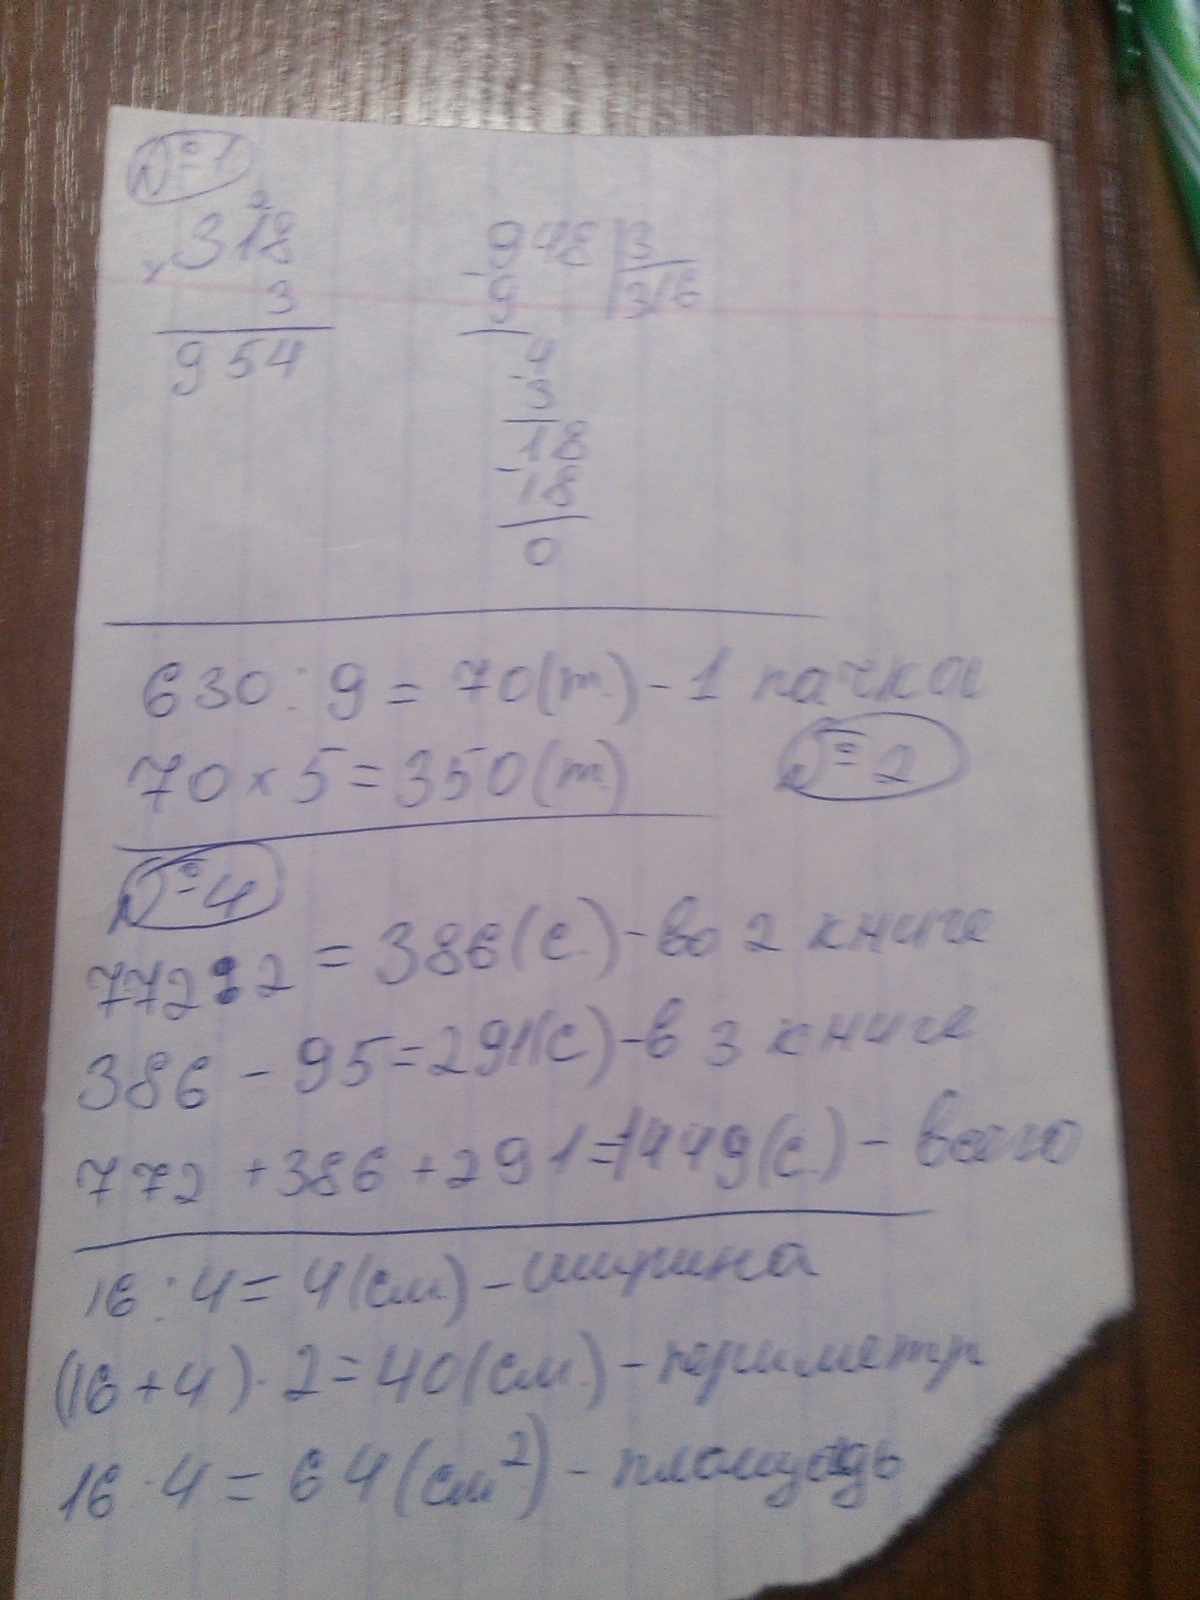 №1
2
× 318
3
954
- 948 | 3
9 | 316
4
- 3
18
- 18
0
630 : 9 = 70 (т.) - 1 пачка
70 × 5 = 350 (т.)
№2
№4
772 : 2 = 386 (с.) - во 2 книге
386 - 95 = 291 (с) - в 3 книге
772 + 386 + 291 = 1449 (с.) - всего
16 : 4 = 4 (см.) - ширина
(16 + 4) · 2 = 40 (см.) - периметр
16 · 4 = 64 (см²) - площадь